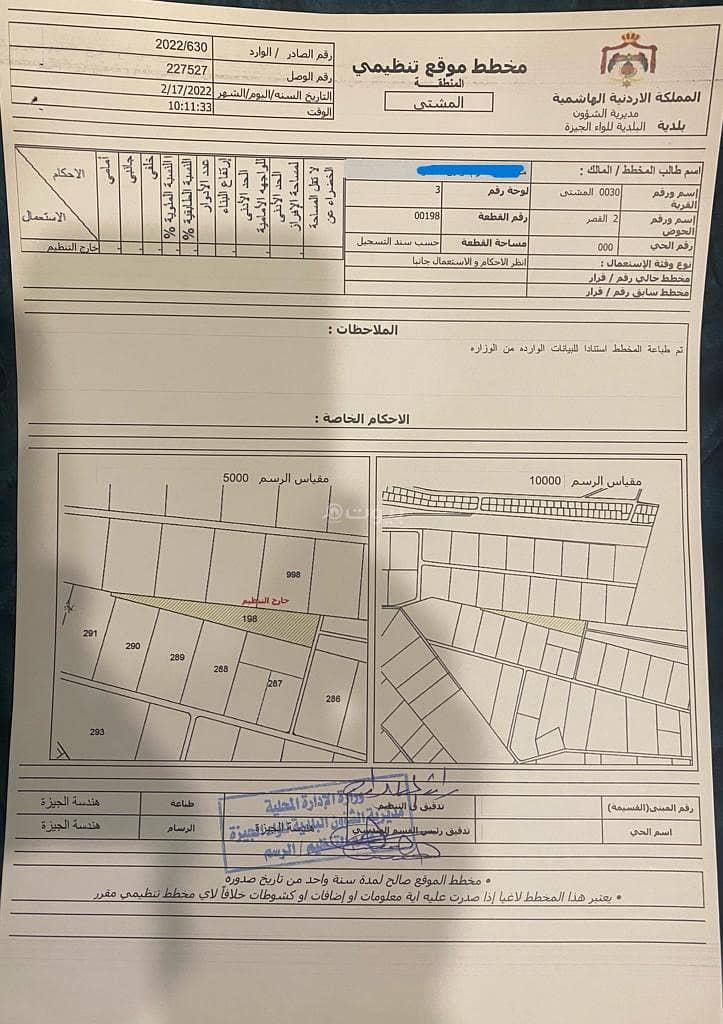 المملكة الاردنية الهاشمية
مديرية الشؤون
بلدية البلدية للواء الجيزة
مخطط موقع تنظيمي
المنطقة
المشتى
رقم الصادر / الوارد 2022/630
رقم الوصل 227527
التاريخ السنه/اليوم/الشهر 2/17/2022
الوقت 10:11:33
اسم طالب المخطط / المالك :
إسم ورقم القرية 0030 المشتى لوحة رقم 3
إسم ورقم الحوض 2 القصر رقم القطعة 00198
رقم الحي 000 مساحة القطعة حسب سند التسجيل
نوع وفئة الإستعمال : انظر الاحكام و الاستعمال جانبا
مخطط حالي رقم / قرار
مخطط سابق رقم / قرار
الاحكام
الاستعمال
أمامي
جانبي
خلفي
النسبة المئوية %
النسبة الطابقية %
عدد الأدوار
إرتفاع البناء
الحد الأدنى للواجهه الأمامية
الحد الأدنى لمساحة الإفراز
لا تقل المساحة الخضراء عن
خارج التنظيم - - - - - - - - - -
الملاحظات :
تم طباعة المخطط استنادا للبيانات الوارده من الوزاره
الاحكام الخاصة :
مقياس الرسم 10000
مقياس الرسم 5000
بيوت
998
خارج التنظيم
198
291
290
289
288
287
286
293
رقم المبنى(القسيمة) تدقيق ل. التنظيم طباعة هندسة الجيزة
اسم الحي تدقيق رئيس القسم الهندسي هندسة الجيزة الرسام هندسة الجيزة
وزارة الإدارة المحلية
مديرية الشؤون البلدية للواء الجيزة
التنظيم / الرسم
• مخطط الموقع صالح لمدة سنة واحد من تاريخ صدوره
• يعتبر هذا المخطط لاغيا إذا صدرت عليه اية معلومات او إضافات او كشوطات خلافاً لاي مخطط تنظيمي مقرر